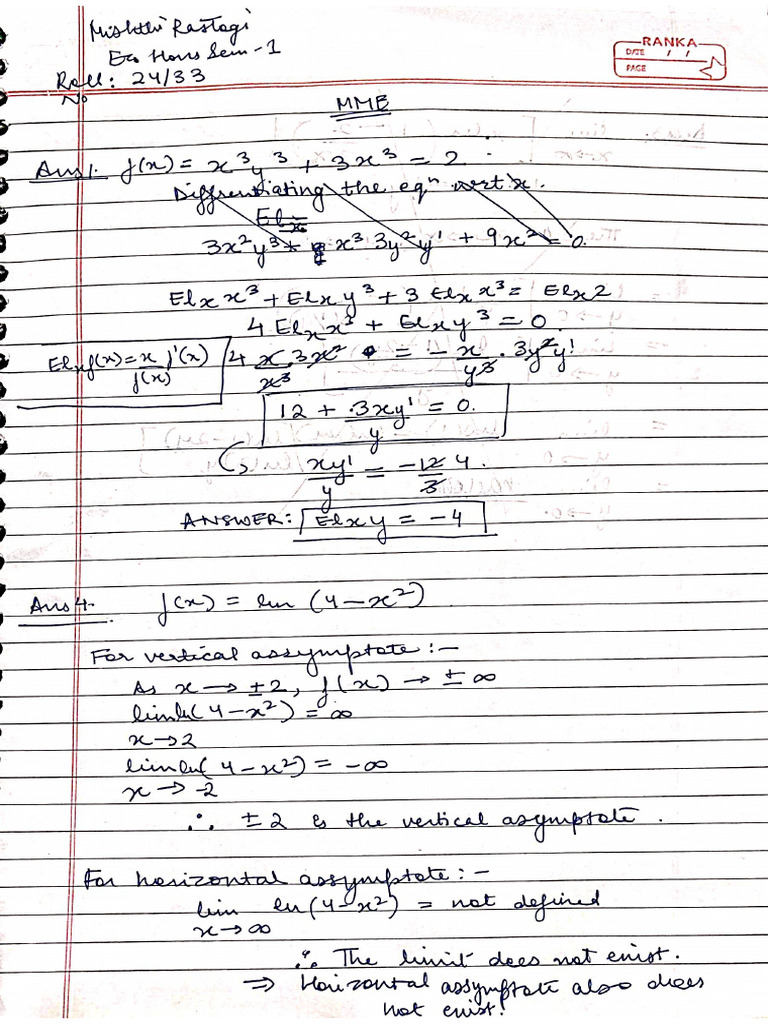 Mishthi Rastogi
Eco Hons Sem - 1
Roll No : 24/33
RANKA
DATE / /
PAGE
MME
Ans 1. f(x) = x³y³ + 3x³ = 2
Differentiating the eqⁿ wrt x.
Elx
3x²y³ + x³ 3y²y' + 9x² = 0
Elx x³ + Elx y³ + 3 Elx x³ = Elx 2
4 Elx x³ + Elx y³ = 0
Elx f(x) = x f'(x) / f(x)
4 x . 3x² / x³ = - x / y³ . 3y²y'
12 + 3xy' / y = 0.
xy' / y = -12 4. / 3
ANSWER: Elx y = -4
Ans 4. f(x) = ln (4 - x²)
For vertical assymptote :-
As x → ±2, f(x) → ± ∞
lim ln(4 - x²) = ∞
x → 2
lim ln(4 - x²) = -∞
x → -2
∴ ± 2 is the vertical asymptote.
For horizontal assymptote :-
lim ln(4 - x²) = not defined
x → ∞
∴ The limit does not exist.
⇒ Horizontal assymptote also does
not exist.